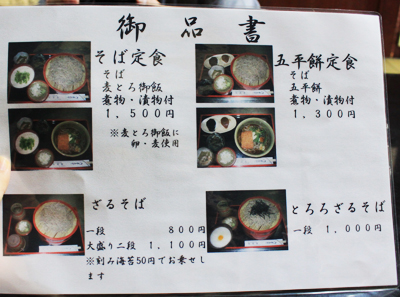 御品書
そば定食
そば
麦とろ御飯
煮物・漬物付
1,500円
※麦とろ御飯に
卵・麦使用
五平餅定食
そば
五平餅
煮物・漬物付
1,300円
ざるそば
一段 800円
大盛り二段 1,100円
※刻み海苔50円でお乗せし
ます
とろろざるそば
一段 1,000円